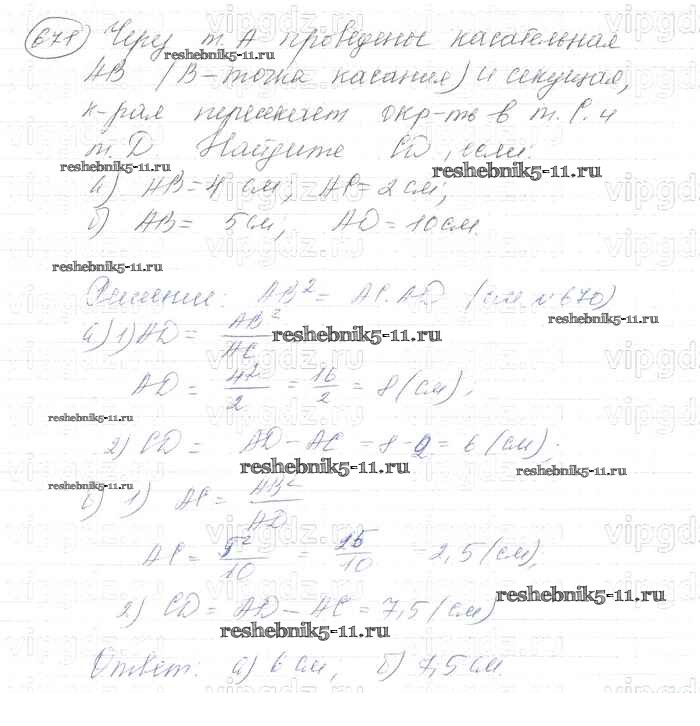 671) Через т. А проведены касательная
АВ (В – точка касания) и секущая,
к-рая пересекает окр-ть в т. С и
т. D. Найдите CD, если:
а) АВ = 4 см; АС = 2 см;
б) АВ = 5 см; AD = 10 см.
Решение: АВ² = АС·AD (см. №670)
а) 1) AD = АВ² / АС
AD = 4² / 2 = 16 / 2 = 8 (см);
2) CD = AD – АС = 8 – 2 = 6 (см);
б) 1) АС = АВ² / AD
АС = 5² / 10 = 25 / 10 = 2,5 (см);
2) CD = AD – АС = 7,5 (см)
Ответ: а) 6 см; б) 7,5 см.
reshebnik5-11.ru
reshebnik5-11.ru
reshebnik5-11.ru
reshebnik5-11.ru
reshebnik5-11.ru
reshebnik5-11.ru
reshebnik5-11.ru
reshebnik5-11.ru
reshebnik5-11.ru
reshebnik5-11.ru
reshebnik5-11.ru
reshebnik5-11.ru